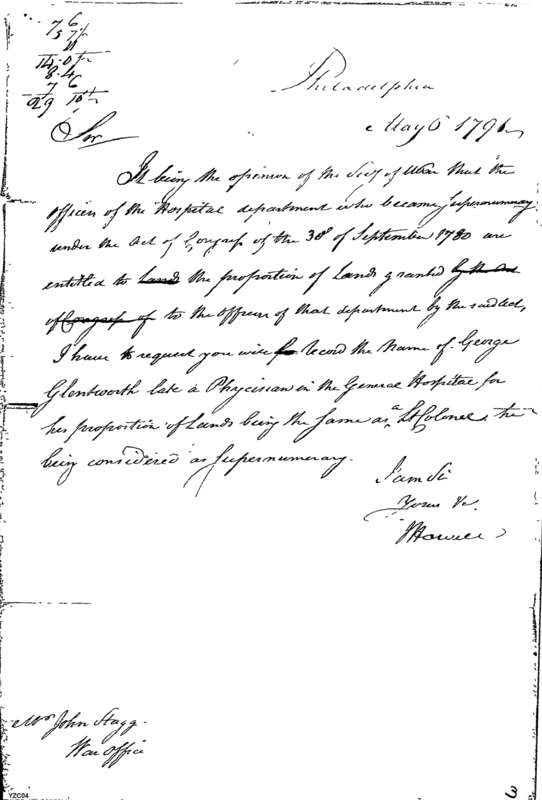 7 6
5 7 1/2
11
14.0 1/2
8.4
7 6
29 10 1/2
Philadelphia
May 6 1791
Sir
It being the opinion of the Secy of War that the
officers of the Hospital department who became Supernumerary
under the Act of Congress of the 3d of September 1780 are
entitled to Lands the proportion of Lands granted by the Act
of Congress of to the Officers of that department by the said Act,
I have to request you will for record the Name of George
Glentworth late a Phycisian in the General Hospital for
his proportion of Lands being the Same as a Lt Colonel, he
being considered as Supernumerary.
I am Sir
Yours &c.
JHowell
Mr. John Stagg.
War Office
YZC04
3